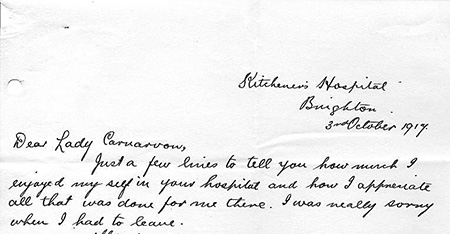 Kitchener's Hospital
Brighton
3rd October 1917.
Dear Lady Carnarvon,
Just a few lines to tell you how much I
enjoyed my self in your hospital and how I appreciate
all that was done for me there. I was really sorry
when I had to leave.